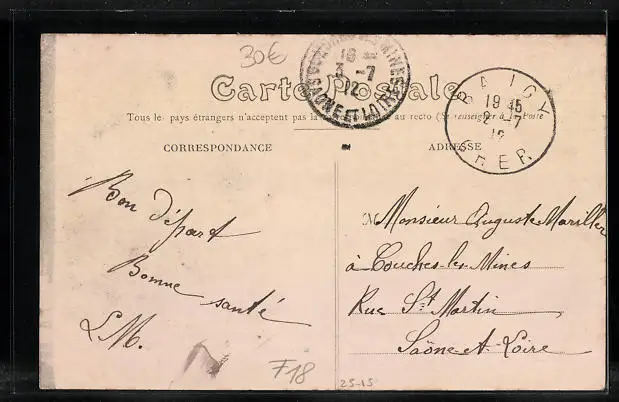 30€
COUCHES-LES-MINES
18
3 -7
12
SAONE ET LOIRE
BAIGY
19 45
2 -7
12
CHER
Carte Postale
Tous les pays étrangers n'acceptent pas la au recto (Se renseigner à la Poste
CORRESPONDANCE
ADRESSE
Bon départ
Bonne santé
L M.
Monsieur Auguste Mariller
à Couches-les-Mines
Rue St Martin
Saône-et-Loire
F18
25-15